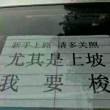 新手上路 请多关照
尤其是上坡
我要梭